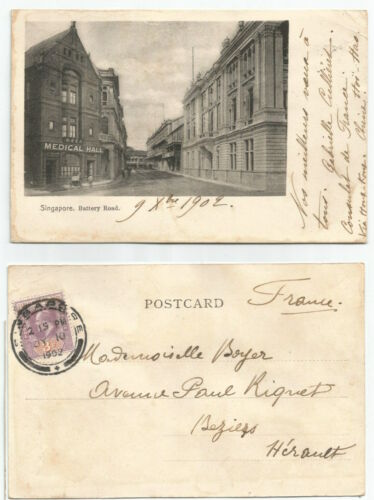 MEDICAL HALL
Singapore. Battery Road.
9 Xbre 1902
Nos meilleurs voeux à
tous. Gabrielle
Consulat de France
Hoï Hao
Via Hong Kong. Chine.
POSTCARD
France.
SINGAPORE
PM
10
1902
Mademoiselle Boyer
Avenue Paul Riquet
Beziers
Hérault